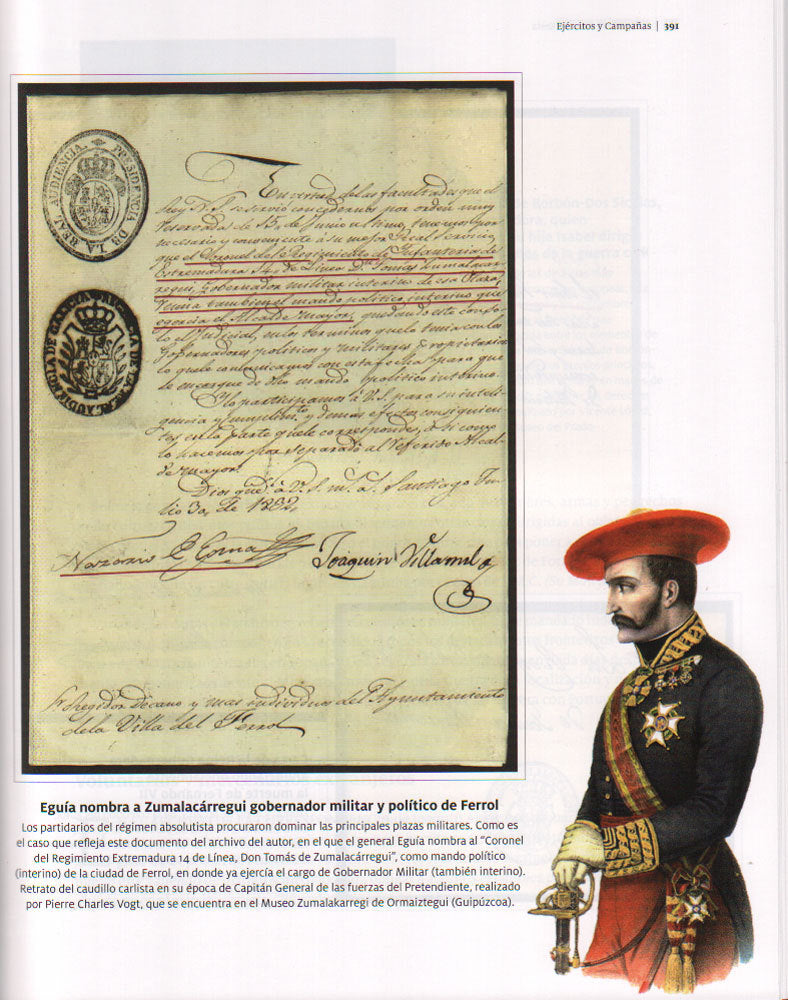 Ejércitos y Campañas | 391
PRESIDENCIA DE LA REAL AUDIENCIA.
En virtud de las facultades que el
Rey N. S. se sirvió concedernos por orden muy
reservada de 15, de Junio ultimo, tenemos por
necesario y conveniente à su mejor Real servicio,
que el Coronel del Regimiento de Infanteria de
Estremadura 14, de Linea Dn. Tomas Zumalacar-
regui, Gobernador militar interino de esa Plaza,
tenia tambien el mando politico interino que
egercia el Alcalde mayor, quedando este con so-
lo el Judicial, en los terminos que lo tenia con los
Gobernadores politicos y militares propietarios
lo que le comunicamos con esta fecha para que
se encargue de dho mando politico interino.
Lo participamos à V.S. para su inteli-
gencia y cumplimto. y demas efectos consiguien-
tes en la parte que le corresponde, a si como
lo hacemos por separado al referido Alcal-
de mayor.
Dios gue. à V.S. m. a. Santiago Ju-
lio 30, de 1832,
Nazario Eguia
Joaquin Villamil
Sr. Regidor Decano y mas individuos del Ayuntamiento
de la Villa del Ferrol
Eguía nombra a Zumalacárregui gobernador militar y político de Ferrol
Los partidarios del régimen absolutista procuraron dominar las principales plazas militares. Como es
el caso que refleja este documento del archivo del autor, en el que el general Eguía nombra al “Coronel
del Regimiento Extremadura 14 de Línea, Don Tomás de Zumalacárregui”, como mando político
(interino) de la ciudad de Ferrol, en donde ya ejercía el cargo de Gobernador Militar (también interino).
Retrato del caudillo carlista en su época de Capitán General de las fuerzas del Pretendiente, realizado
por Pierre Charles Vogt, que se encuentra en el Museo Zumalakarregi de Ormaiztegui (Guipúzcoa).